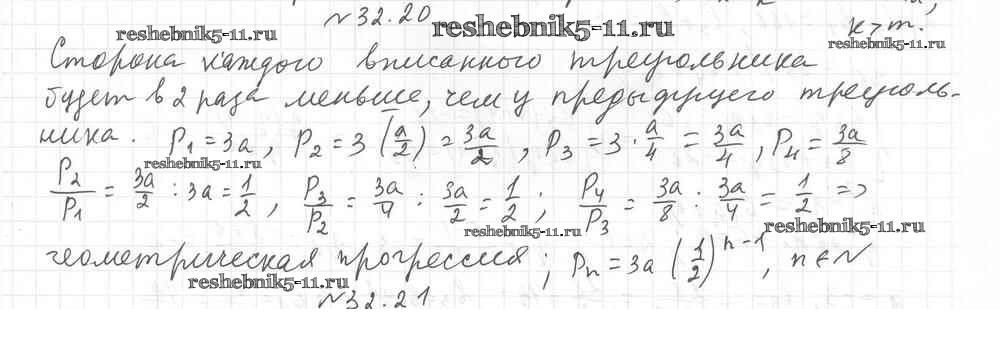 N 32.20
reshebnik5-11.ru
k > m.
reshebnik5-11.ru
reshebnik5-11.ru
Сторона каждого вписанного треугольника
будет в 2 раза меньше, чем у предыдущего треуголь-
ника. P₁ = 3a, P₂ = 3 (a/2) = 3a/2, P₃ = 3 · a/4 = 3a/4, P₄ = 3a/8
reshebnik5-11.ru
P₂/P₁ = 3a/2 : 3a = 1/2, P₃/P₂ = 3a/4 : 3a/2 = 1/2; P₄/P₃ = 3a/8 : 3a/4 = 1/2 =>
reshebnik5-11.ru
reshebnik5-11.ru
геометрическая прогрессия; Pₙ = 3a (1/2)ⁿ⁻¹, n ∈ N
reshebnik5-11.ru
N 32.21